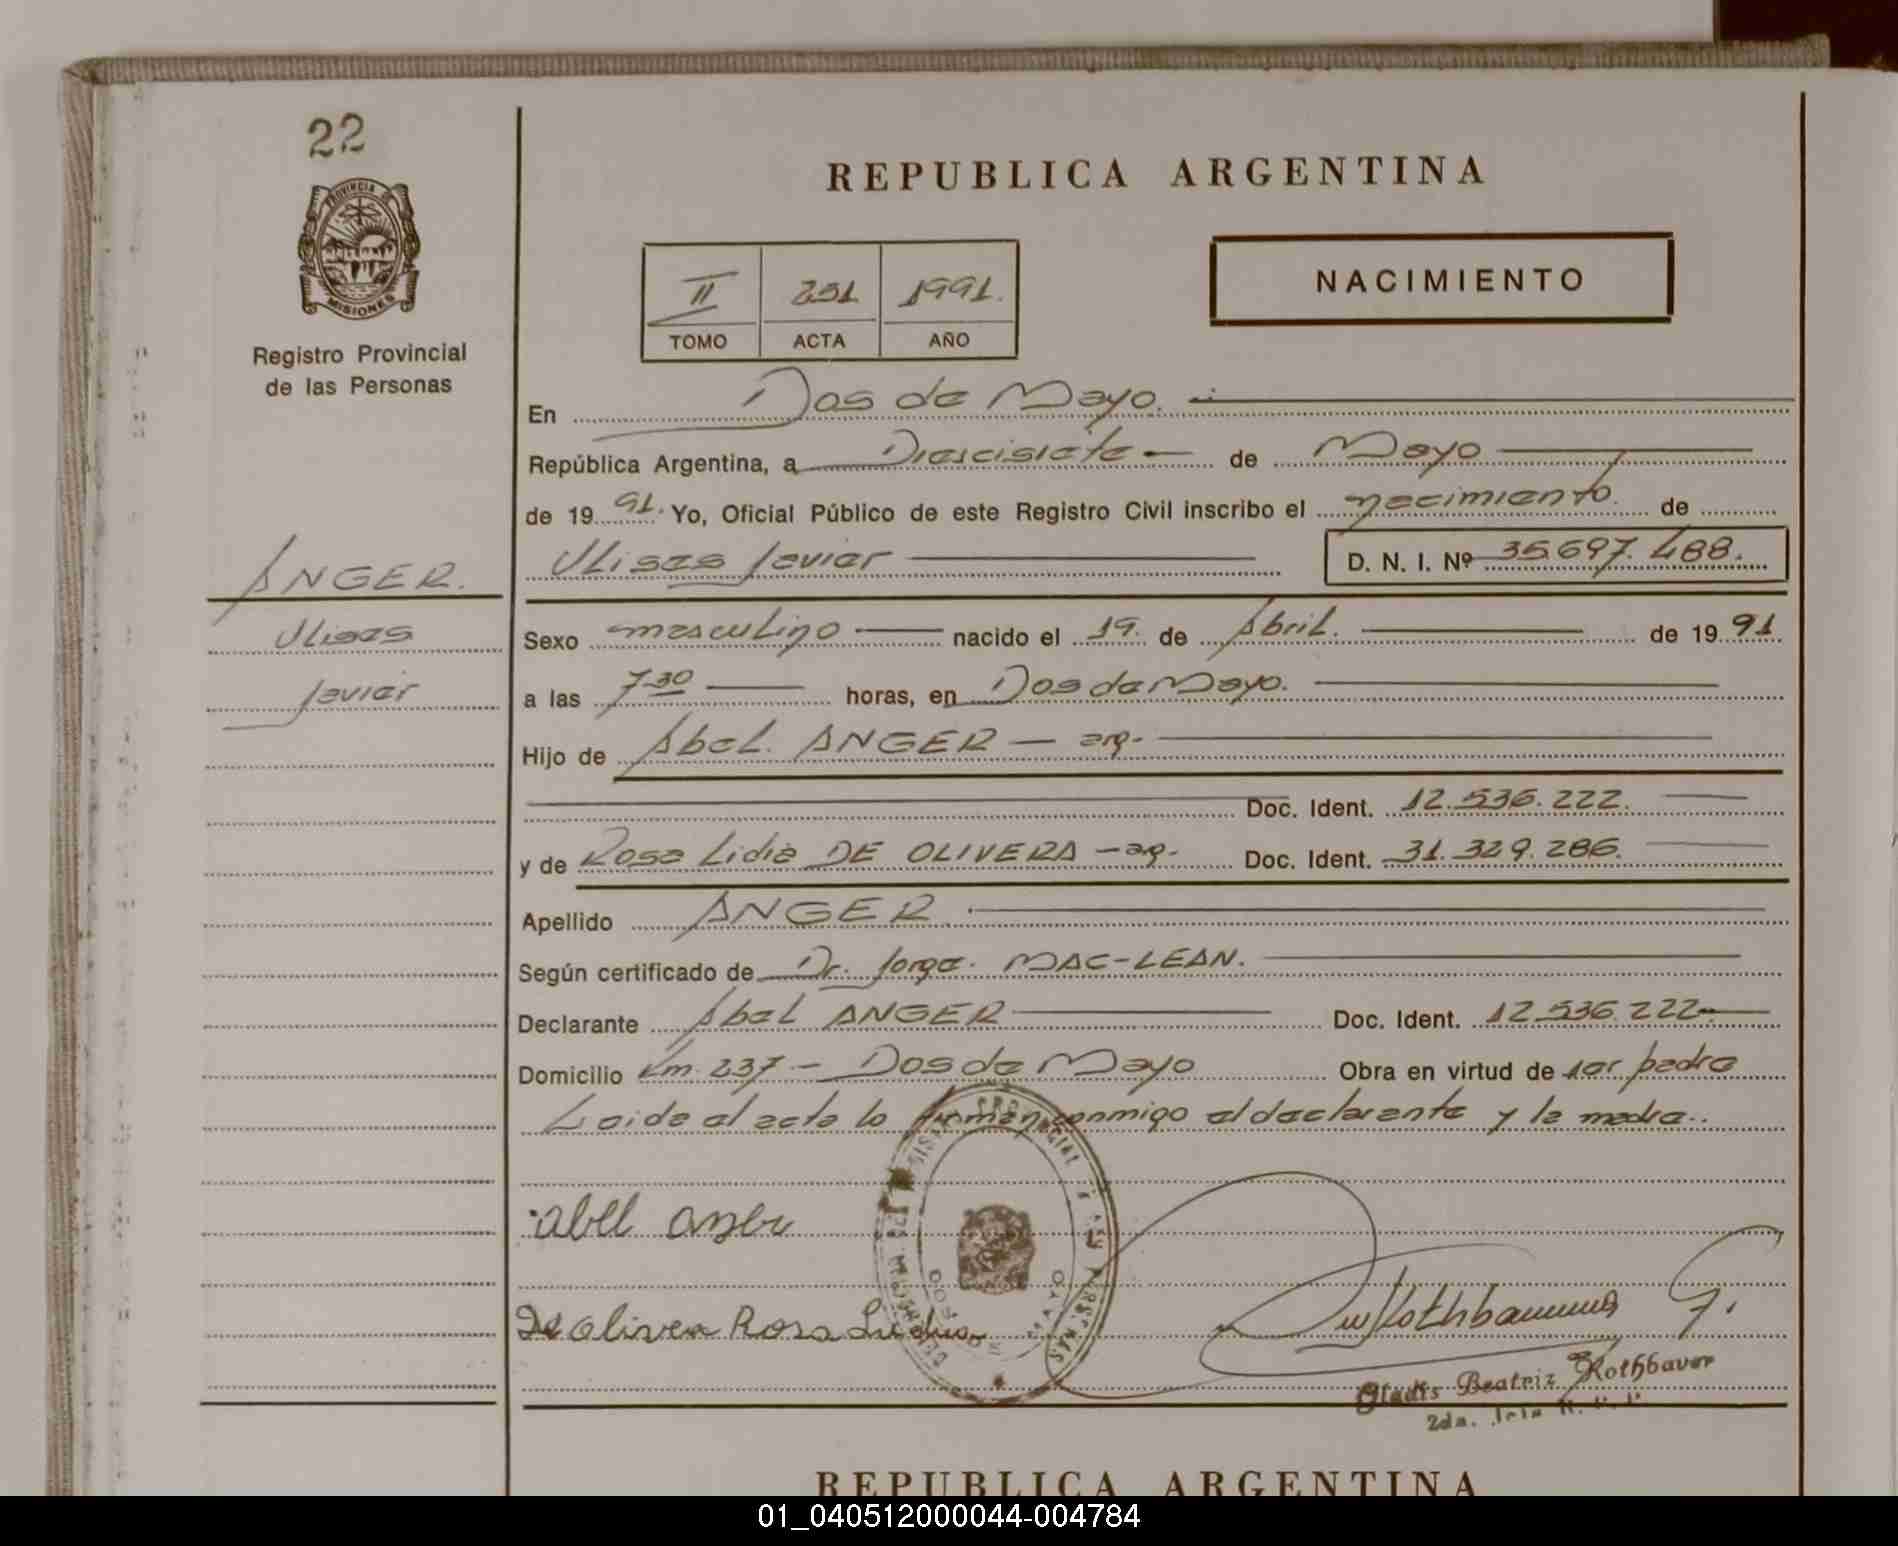 22
PROVINCIA DE
MISIONES
Registro Provincial
de las Personas
ANGER.
Ulises
Javier
REPUBLICA ARGENTINA
II 251 1991.
TOMO ACTA AÑO
NACIMIENTO
En Dos de Mayo.
República Argentina, a Diescisiete de Mayo
de 19 91. Yo, Oficial Público de este Registro Civil inscribo el nacimiento. de
Ulises Javier D. N. I. Nº 35.697.488.
Sexo masculino nacido el 19. de Abril. de 19 91
a las 7-30 horas, en Dos de Mayo.
Hijo de Abel. ANGER — arg.
Doc. Ident. 12.536.222.
y de Rosa Lidia DE OLIVERA - ag. Doc. Ident. 31.329.286.
Apellido ANGER
Según certificado de Dr. Jorge. MAC-LEAN.
Declarante Abel ANGER Doc. Ident. 12.536.222
Domicilio Km. 237 - Dos de Mayo Obra en virtud de ser padre
Leida el acta lo firman conmigo el declarante y la madre..
abel anger
De Oliver Rosa Lidia
DOS DE MAYO
Gladis Beatriz Rothbaver
2da.
REPUBLICA ARGENTINA
01_040512000044-004784